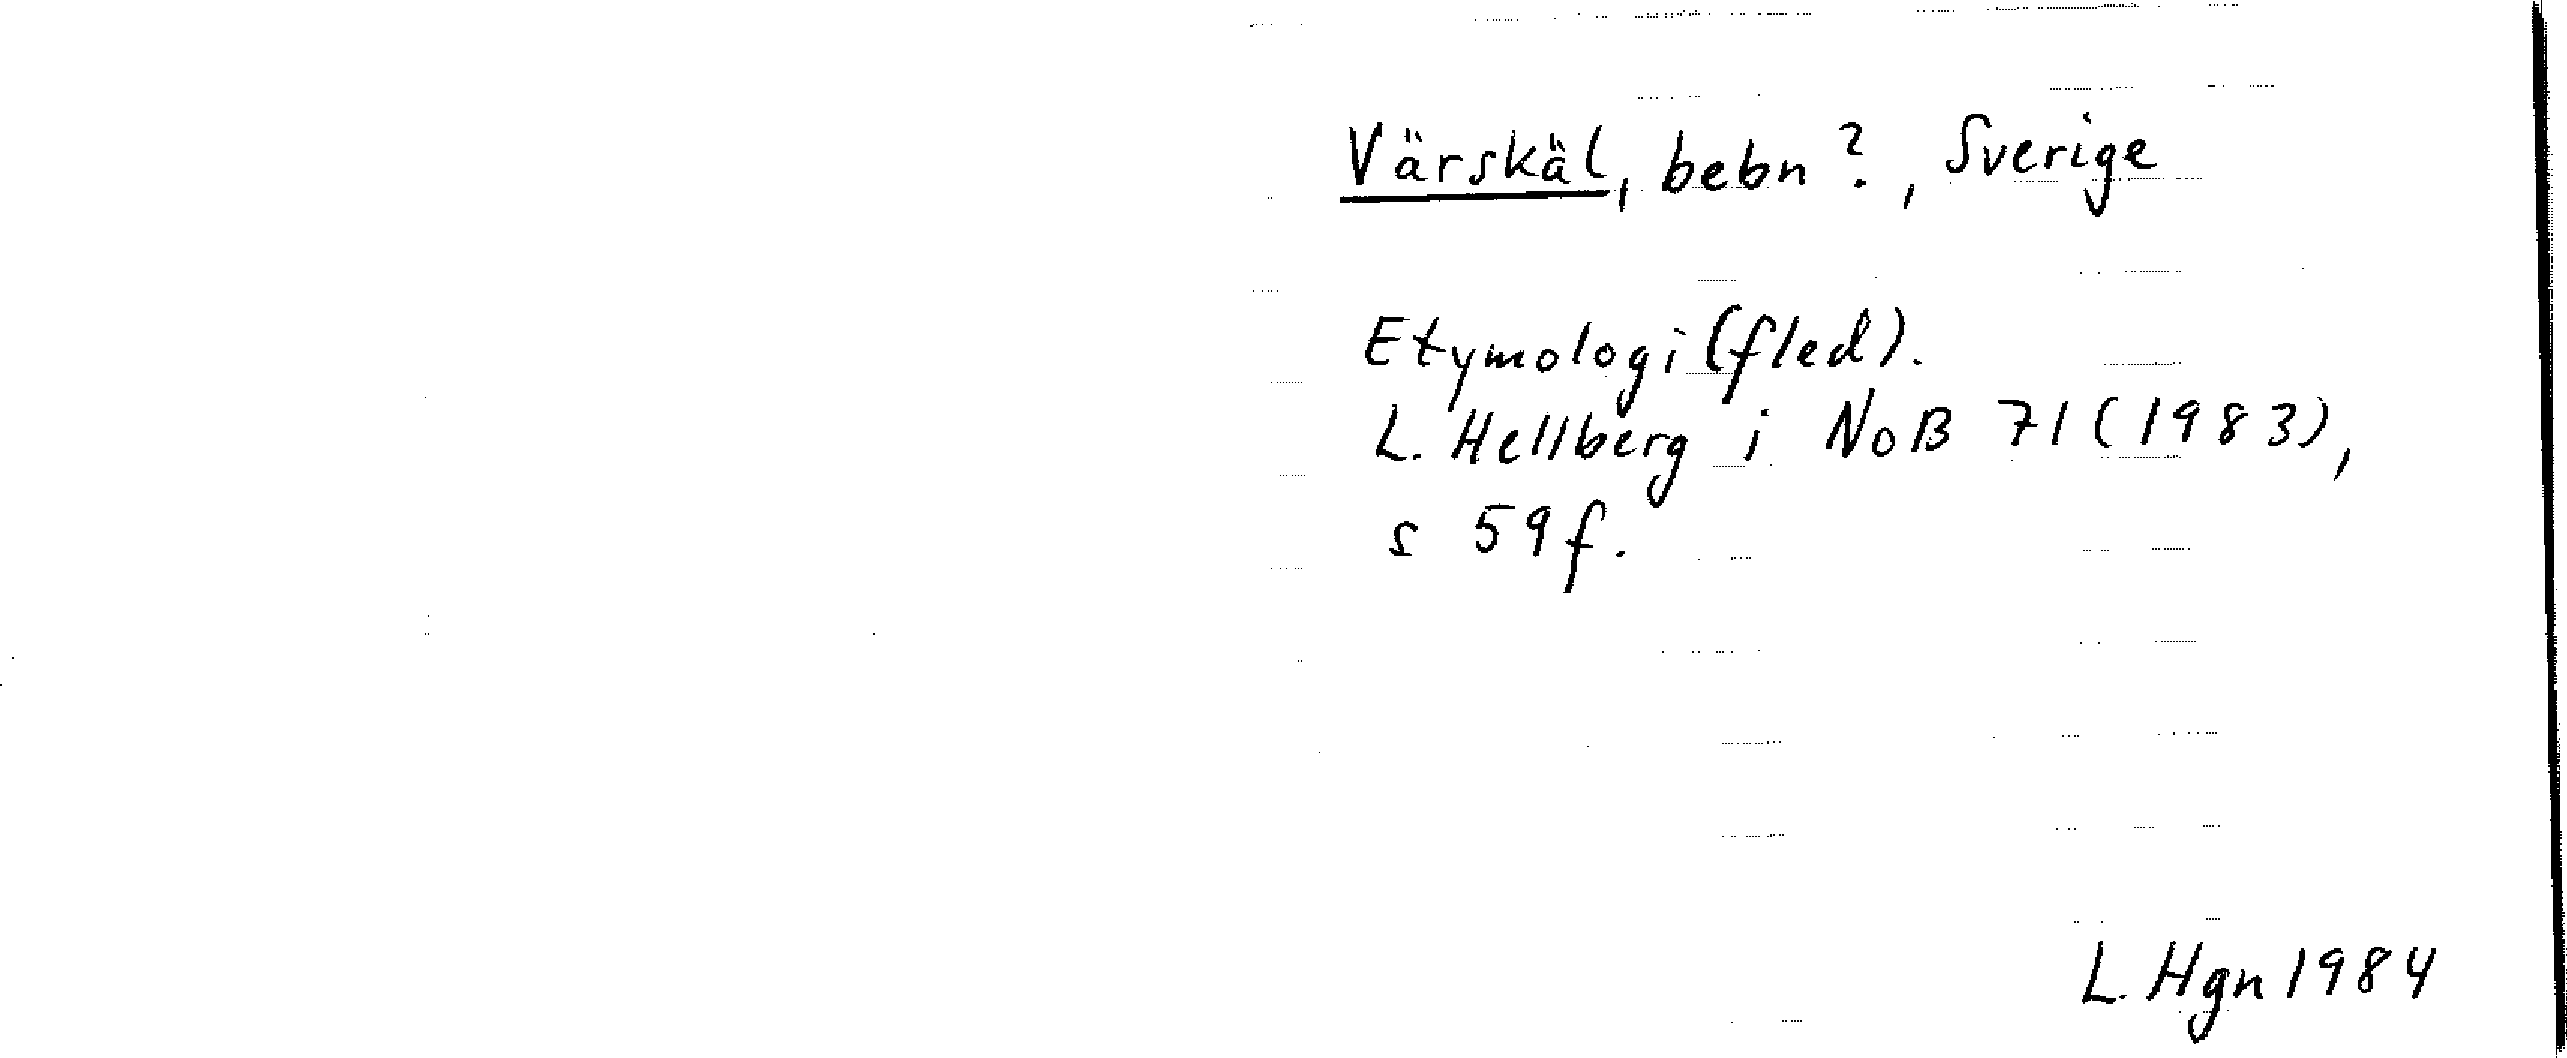 Värskäl, bebn?, Sverige
Etymologi (fled).
L. Hellberg i NoB 71 (1983),
s 59f.
L. Hgn 1984